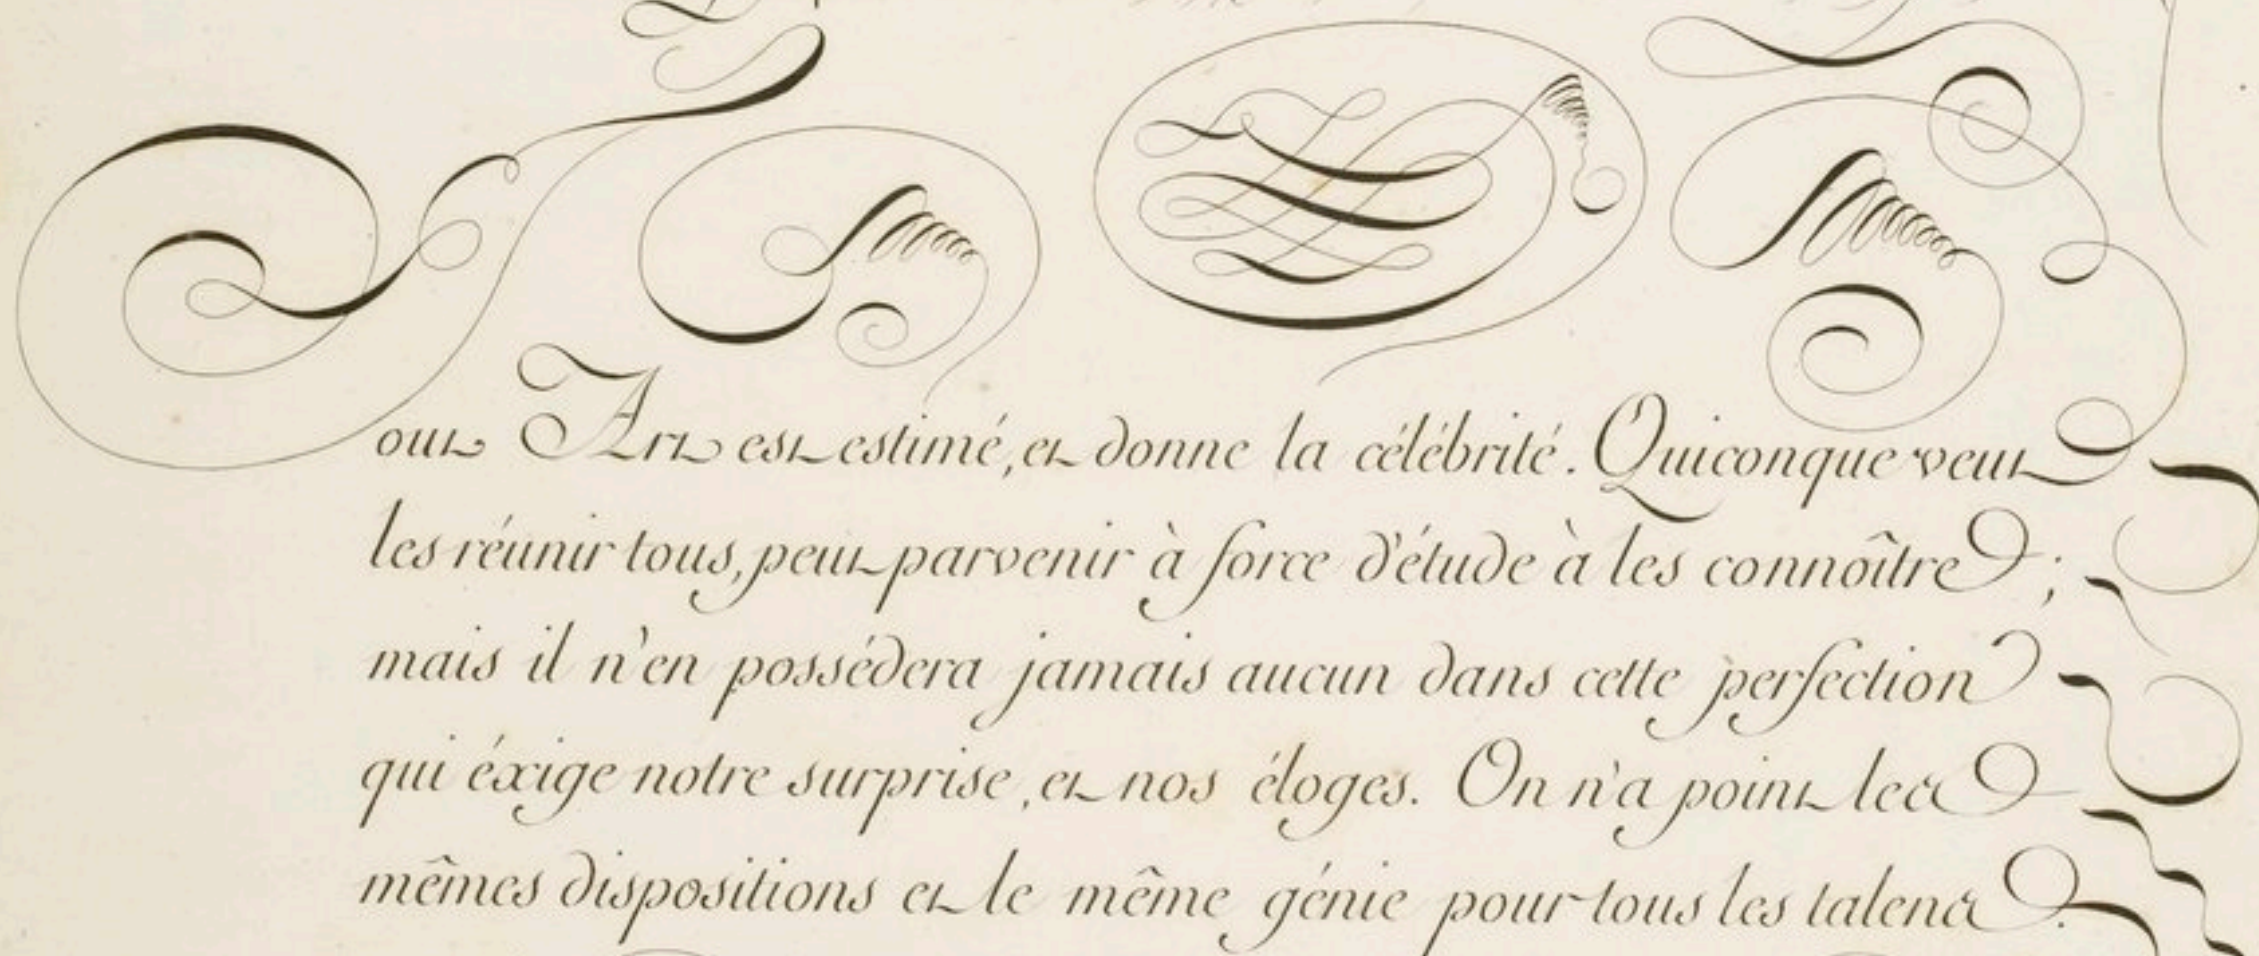 Tout Art est estimé, et donne la célébrité. Quiconque veut
les réunir tous, peut parvenir à force d'étude à les connoître ;
mais il n'en possédera jamais aucun dans cette perfection
qui éxige notre surprise, et nos éloges. On n'a point les
mêmes dispositions et le même génie pour tous les talens.